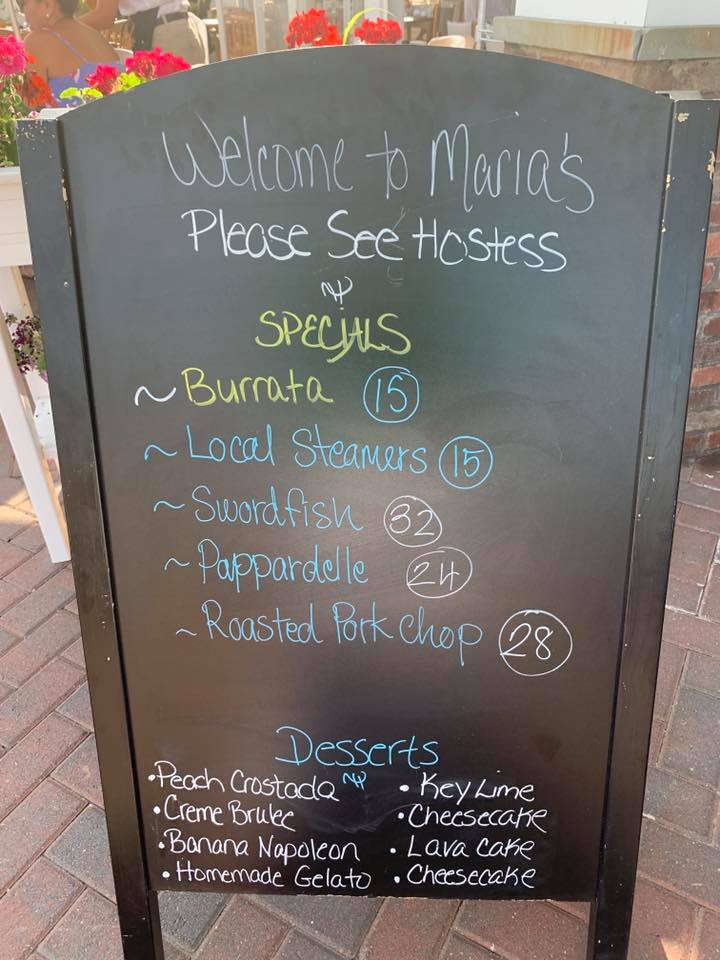 Welcome to Maria's
Please See Hostess
SPECIALS
~ Burrata 15
~ Local Steamers 15
~ Swordfish 32
~ Pappardelle 24
~ Roasted Pork Chop 28
Desserts
• Peach Crostada
• Creme Brulee
• Banana Napoleon
• Homemade Gelato
• Key Lime
• Cheesecake
• Lava Cake
• Cheesecake